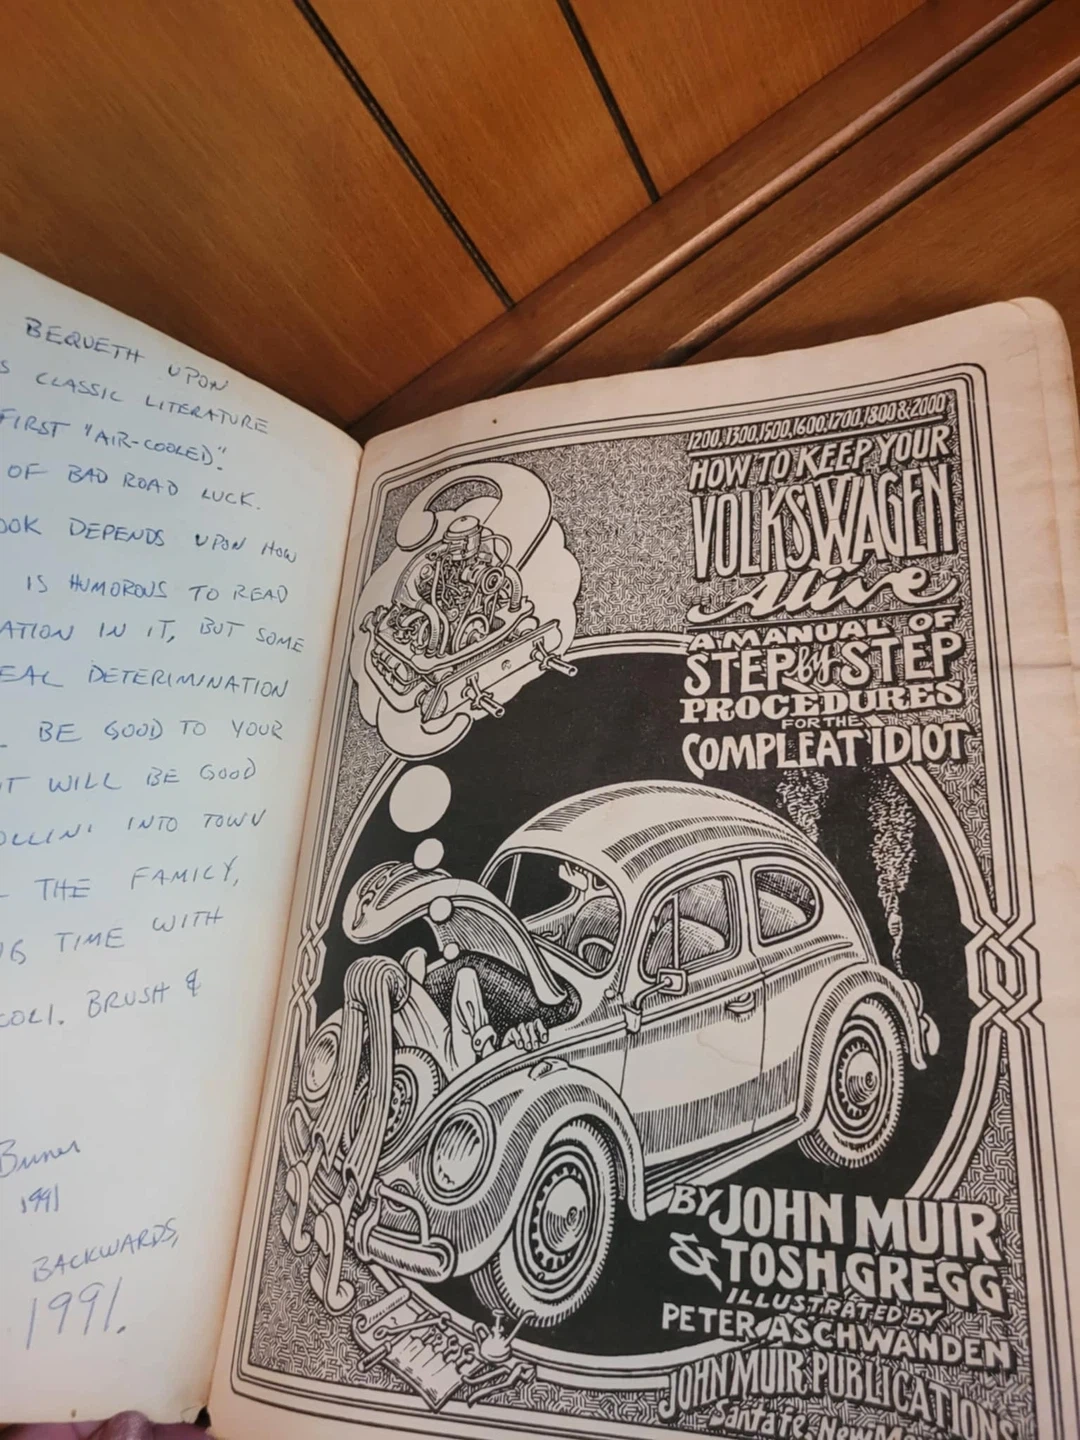 BEQUETH UPON
S CLASSIC LITERATURE
FIRST "AIR-COOLED".
OF BAD ROAD LUCK.
OOK DEPENDS UPON HOW
IS HUMOROUS TO READ
ATION IN IT, BUT SOME
EAL DETERIMINATION
BE GOOD TO YOUR
IT WILL BE GOOD
OLLIN' INTO TOWN
THE FAMILY,
NG TIME WITH
COLI. BRUSH &
1991
BACKWARDS,
1991.
1200, 1300, 1500, 1600, 1700, 1800 & 2000
HOW TO KEEP YOUR
VOLKSWAGEN
Alive
A MANUAL OF
STEP by STEP
PROCEDURES
FOR THE
COMPLEAT IDIOT
BY JOHN MUIR
& TOSH GREGG
ILLUSTRATED BY
PETER ASCHWANDEN
JOHN MUIR PUBLICATIONS
Santa Fe, New M